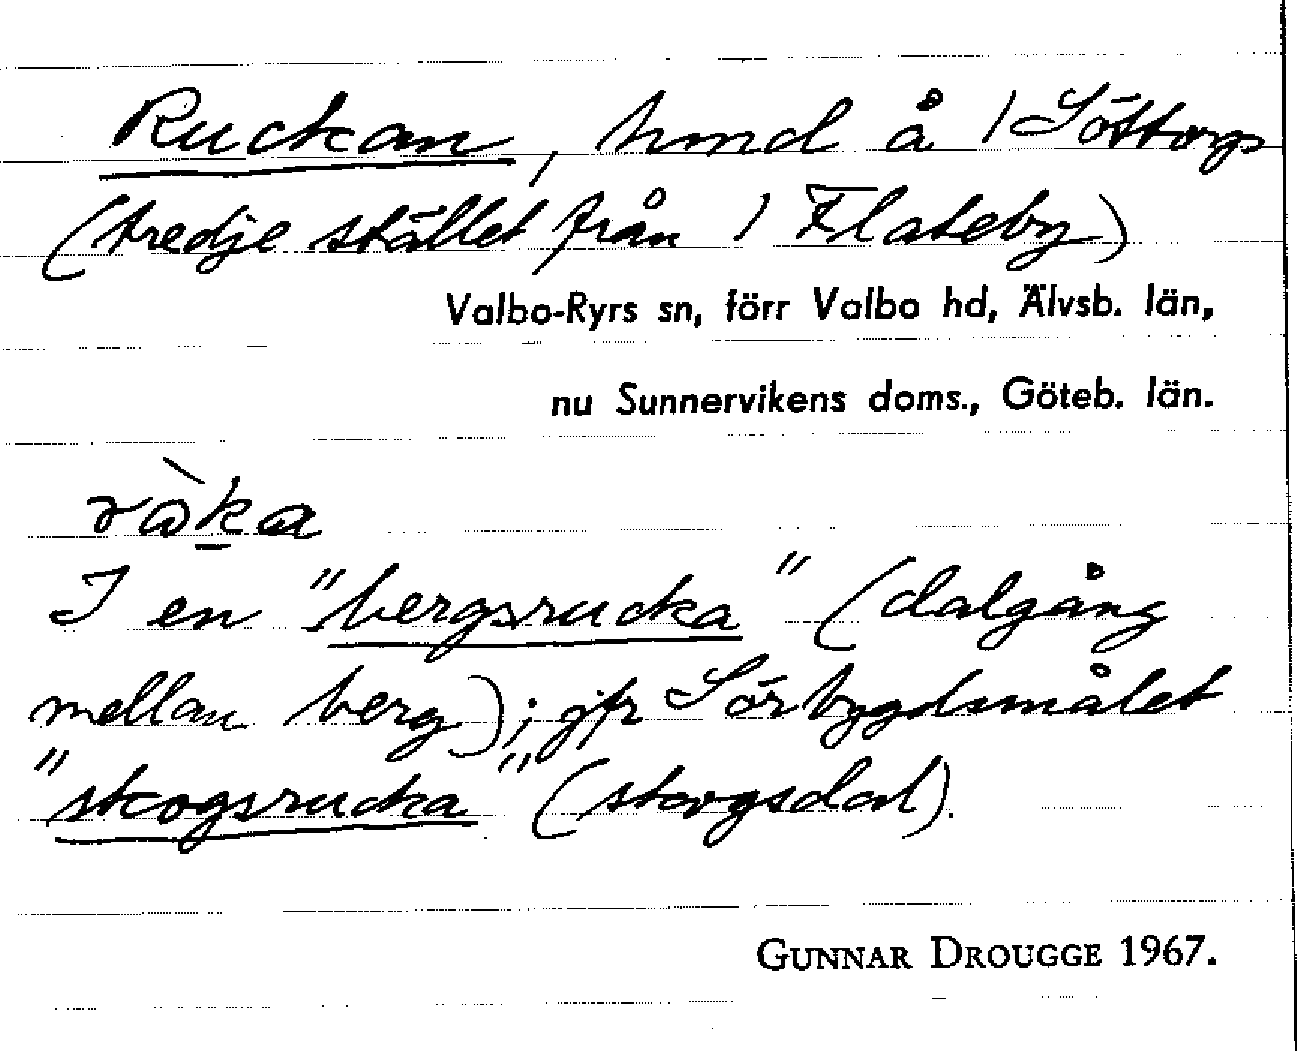 Ruckan, hmd å 1 Söttorp
(tredje stället från 1 Flateby)
Valbo-Ryrs sn, förr Valbo hd, Älvsb. län,
nu Sunnervikens doms., Göteb. län.
ròka
I en "bergsrucka" (dalgång
mellan berg); jfr Sörbygdsmålet
"skogsrucka" (skogsdal).
GUNNAR DROUGGE 1967.